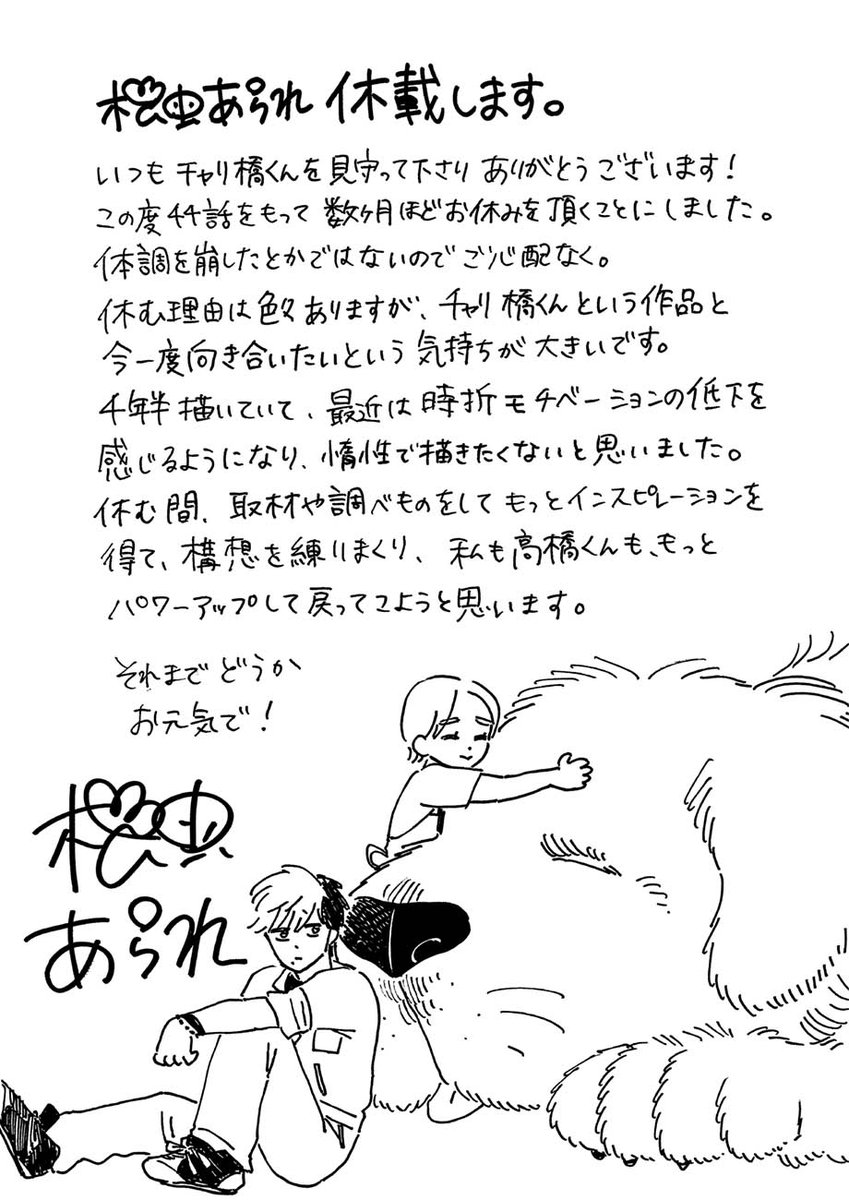 松虫あられ 休載します。
いつも チャリ橋くんを 見守って下さり ありがとうございます!
この度44話をもって 数ヶ月ほどお休みを頂くことにしました。
体調を崩したとかではないので ご心配なく。
休む理由は色々ありますが、チャリ橋くんという作品と
今一度向き合いたいという 気持ちが 大きいです。
4年半 描いていて、最近は 時折 モチベーションの低下を
感じるようになり、惰性で描きたくないと思いました。
休む間、取材や調べものをして もっとインスピレーションを
得て、構想を練りまくり、私も高橋くんも、もっと
パワーアップして戻ってこようと思います。
それまで どうか
お元気で!
松虫
あられ